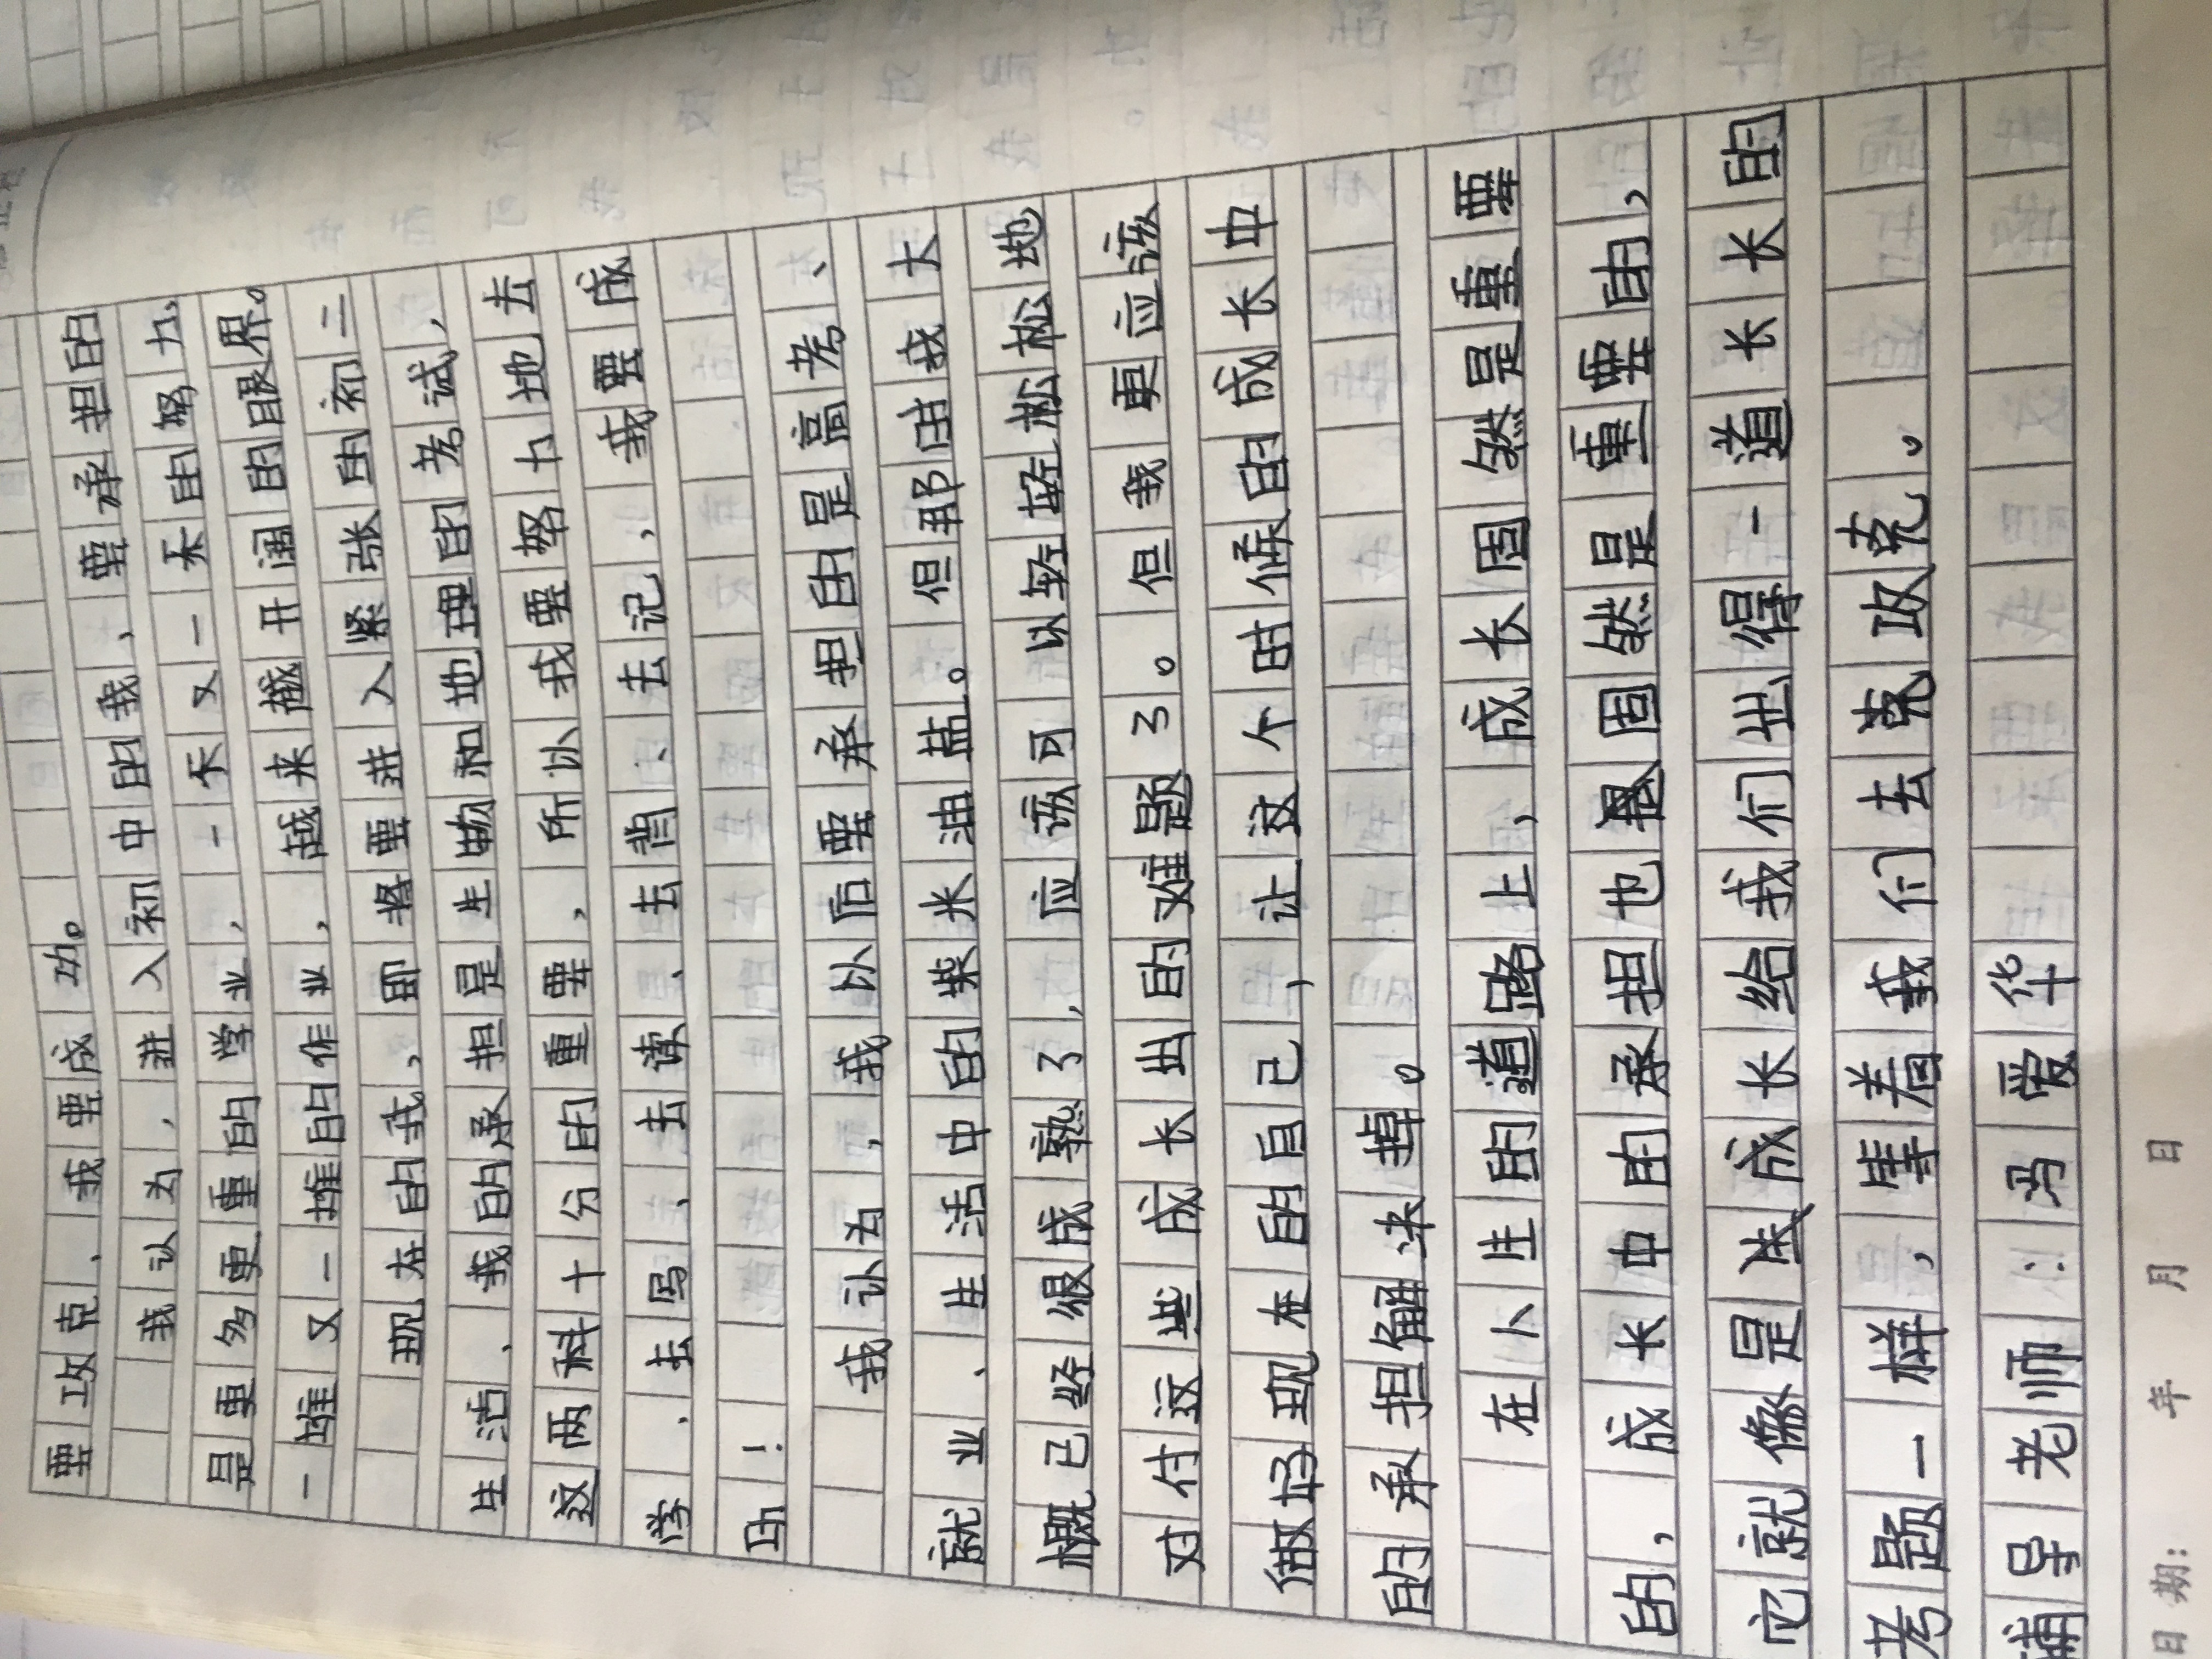 要攻克、我要成功。
我认为,进入初中的我,要承担的
是更多更重的学业,一天又一天的努力、
一堆又一堆的作业,越来越开阔的眼界。
现在的我,即将要进入紧张的初二
生活,我的承担是生物和地理的考试,
这两科十分的重要,所以我要努力地去
学、去写、去读、去背、去记,我要成
功!
我认为,我以后要承担的是高考、
就业、生活中的柴米油盐。但那时我大
概已经很成熟了,应该可以轻轻松松地
对付这些成长出的难题了。但我更应该
做好现在的自己,让这个时候的成长中
的承担解决掉。
在人生的道路上,成长固然是重要
的,成长中的承担也固然是重要的,
它就像是成长给我们出得一道长长的
考题一样,等着我们去克攻克。
辅导老师:冯爱华
日期: 年 月 日